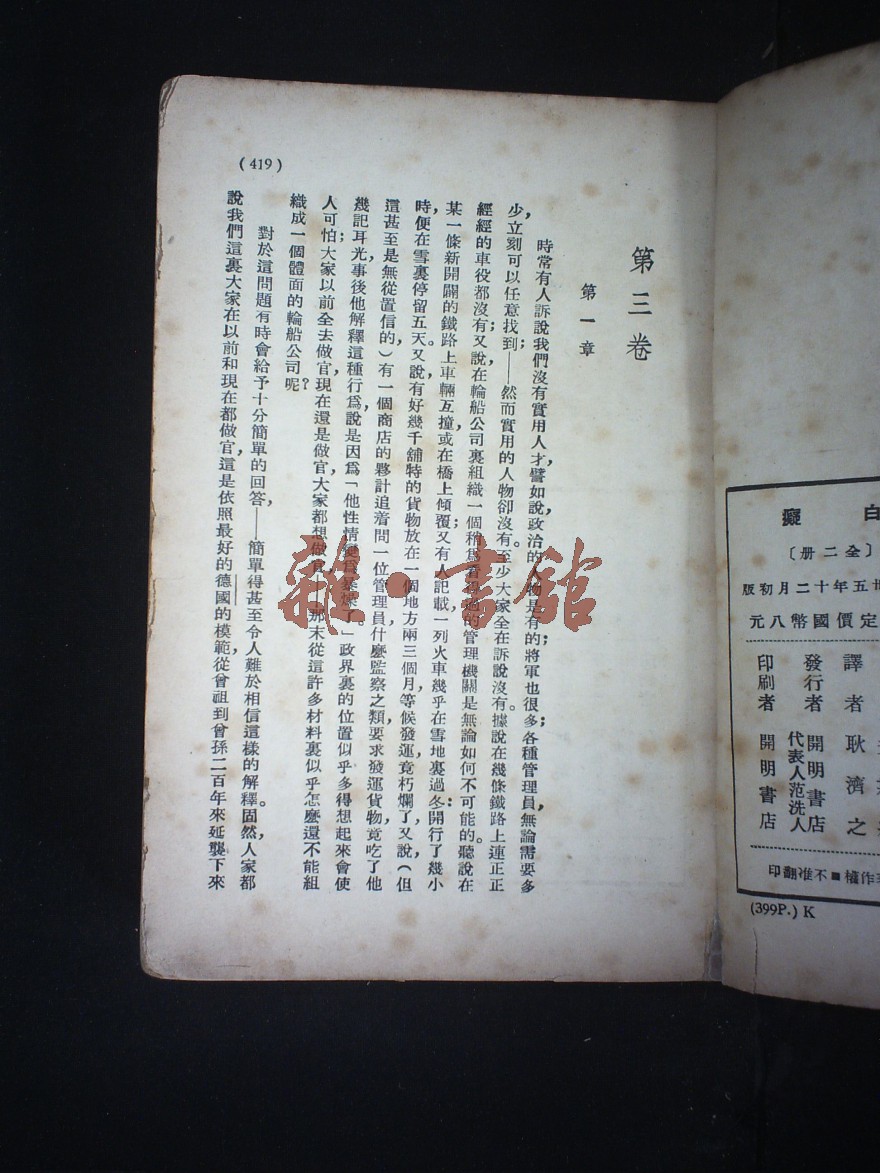 (419)
第三卷
第一章
時常有人訴說我們沒有實用人才，譬如說，政治的人物是有的；將軍也很多；各種管理員，無論需要多
少，立刻可以任意找到；——然而實用的人物卻沒有。至少大家全在訴說沒有。據說在幾條鐵路上連正正
經經的車役都沒有；又說在輪船公司裏組織一個稍為看得過的管理機關是無論如何不可能的。聽說在
某一條新開闢的鐵路上車輛互撞，或在橋上傾覆；又有人記載，一列火車幾乎在雪地裏過冬：開行了幾小
時，便在雪裏停留五天。又說有好幾千鋪特的貨物放在一個地方兩三個月，等候發運，竟朽爛了，又說（但
這甚至是無從置信的，）有一個商店的夥計追着問一位管理員什麼監察之類，要求發運貨物，竟吃了他
幾記耳光，事後他解釋這種行為，說是因為「他性情變為暴燥了。」政界裏的位置似乎多得想起來會使
人可怕；大家以前全去做官，現在還是做官，大家都想做官——那末從這許多材料裏似乎怎麼還不能組
織成一個體面的輪船公司呢？
對於這問題有時會給予十分簡單的回答，——簡單得甚至令人難於相信這樣的解釋。固然，人家都
說我們這裏大家在以前和現在都做官，這是依照最好的德國的模範，從曾祖到曾孫，二百年來延襲下來
雜·書館
白癡
〔全二册〕
五年十二月初版
定價國幣八元
譯者 耿濟之
發行者 開明書店
代表人范洗人
印刷者 開明書店
作權■不准翻印
(399P.) K